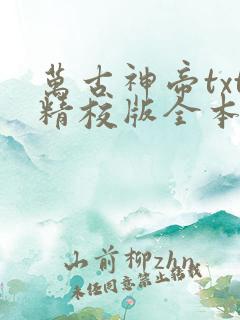 萬古神帝txt
精校版全本
山前柳zhn
未经同意禁止转载